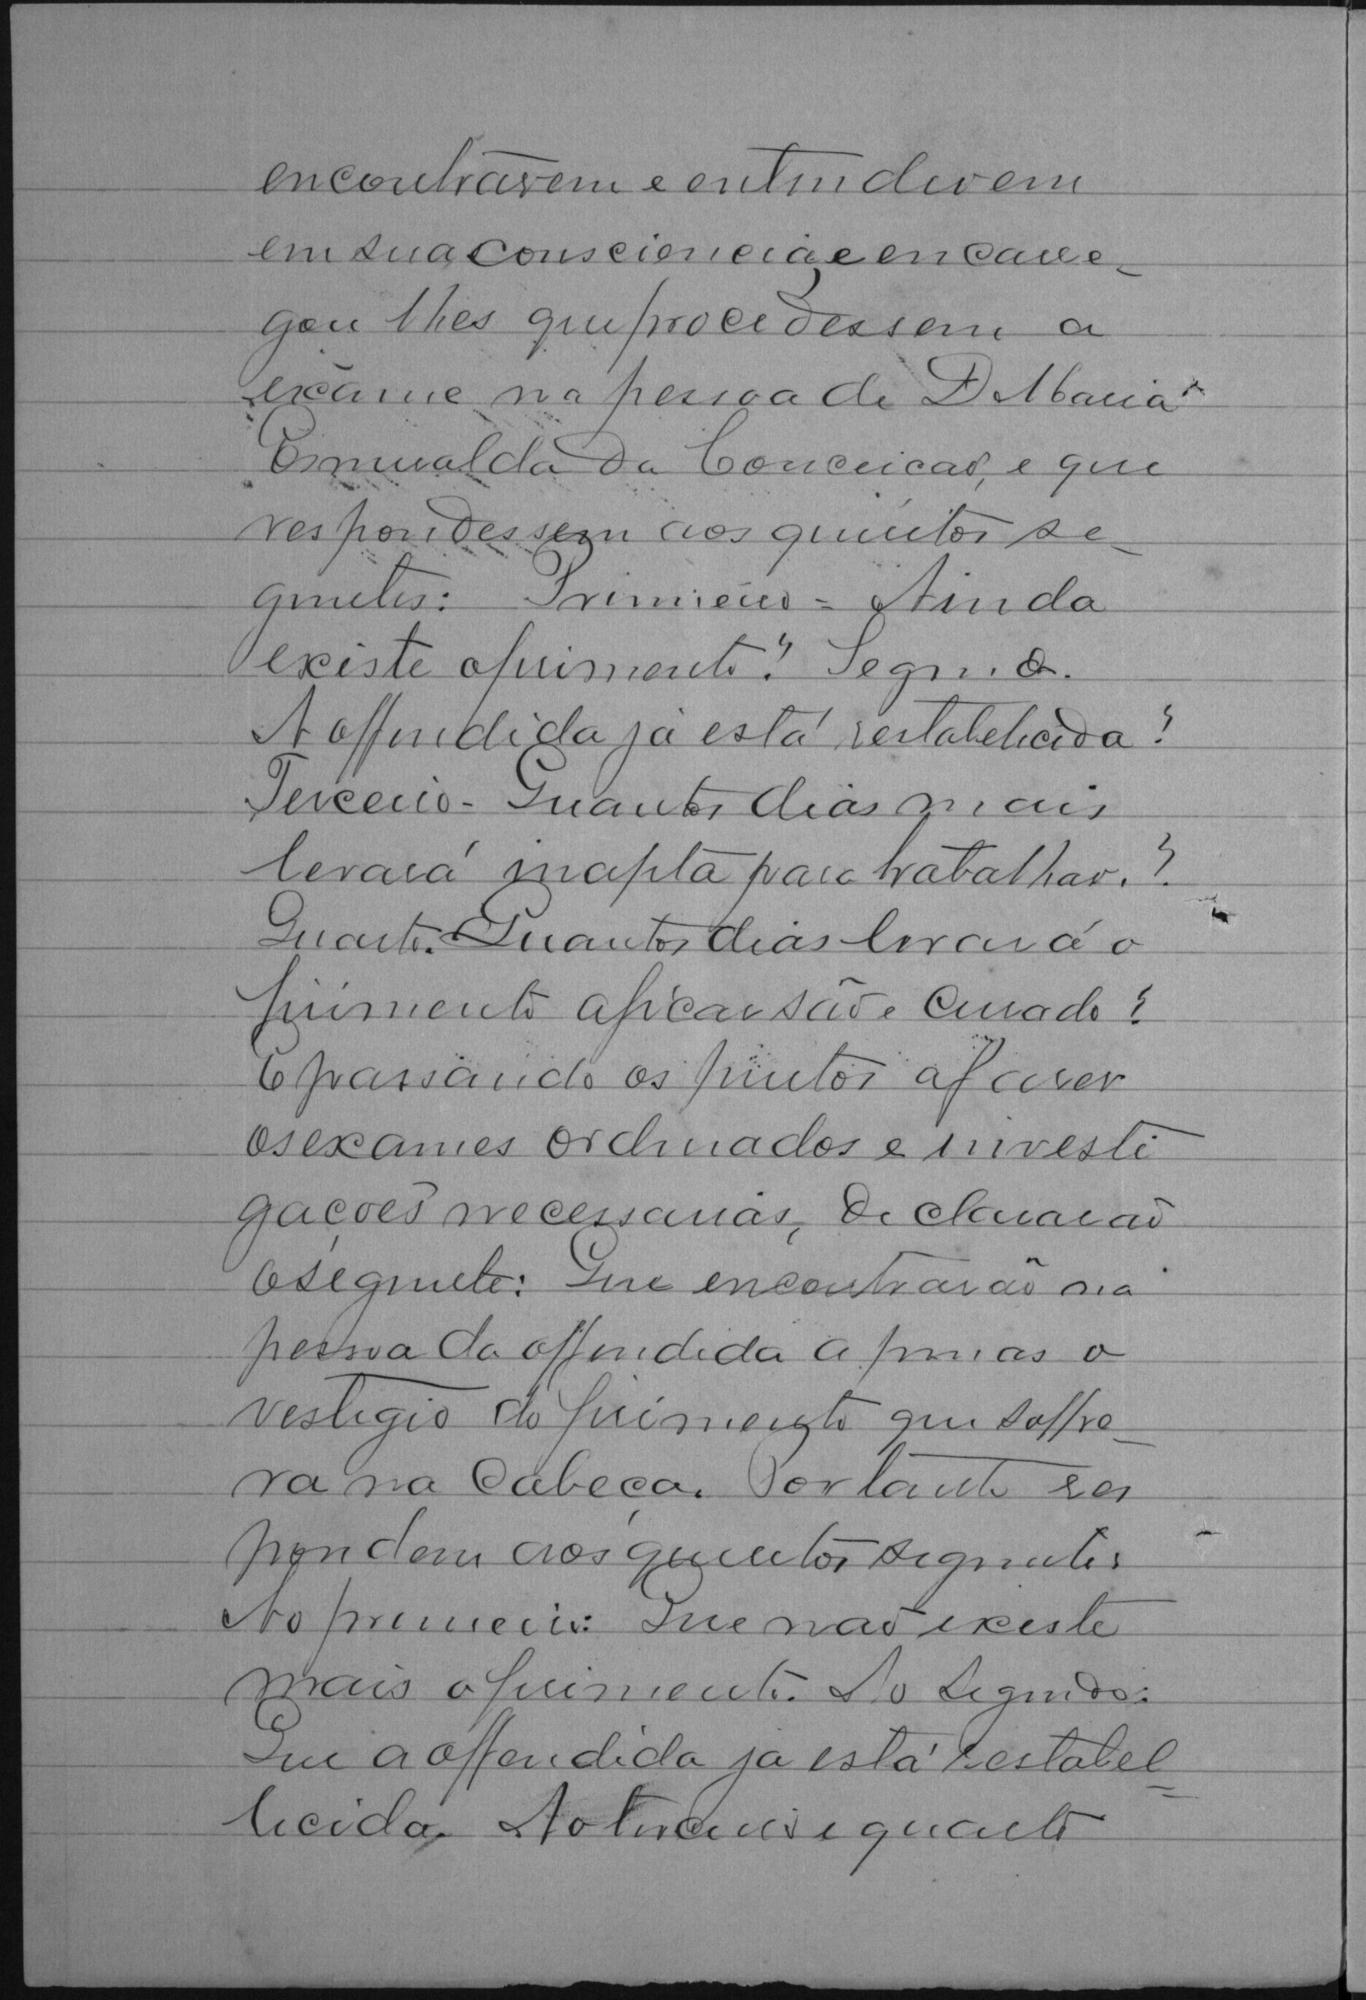 encontrarem e entenderem
em sua consciencia, e encarre-
gou lhes que procedessem a
exame na pessoa de D Maria
Esmeralda da Conceicão, e que
respondessem aos quesitos se-
guintes: Primeiro = Ainda
existe o ferimento? Segndo.
A offendida já está restabelecida?
Terceiro - Quantos dias mais
levará inapta para trabalhar.?
Quarto. Quantos dias levará o
ferimento a ficar são e curado?
E passando os peritos a faser
os exames ordenados e investi
gações necessarias, declararão
o seguinte: Que encontrarão na
pessoa da offendida apenas o
vestigio do ferimento que soffre-
ra na cabeça. Portanto res
pondem aos quesitos seguintes
Ao primeiro: Que não existe
mais o ferimento. Ao segundo:
Que a offendida ja está restabel=
lecida. Ao terceiro e quarto